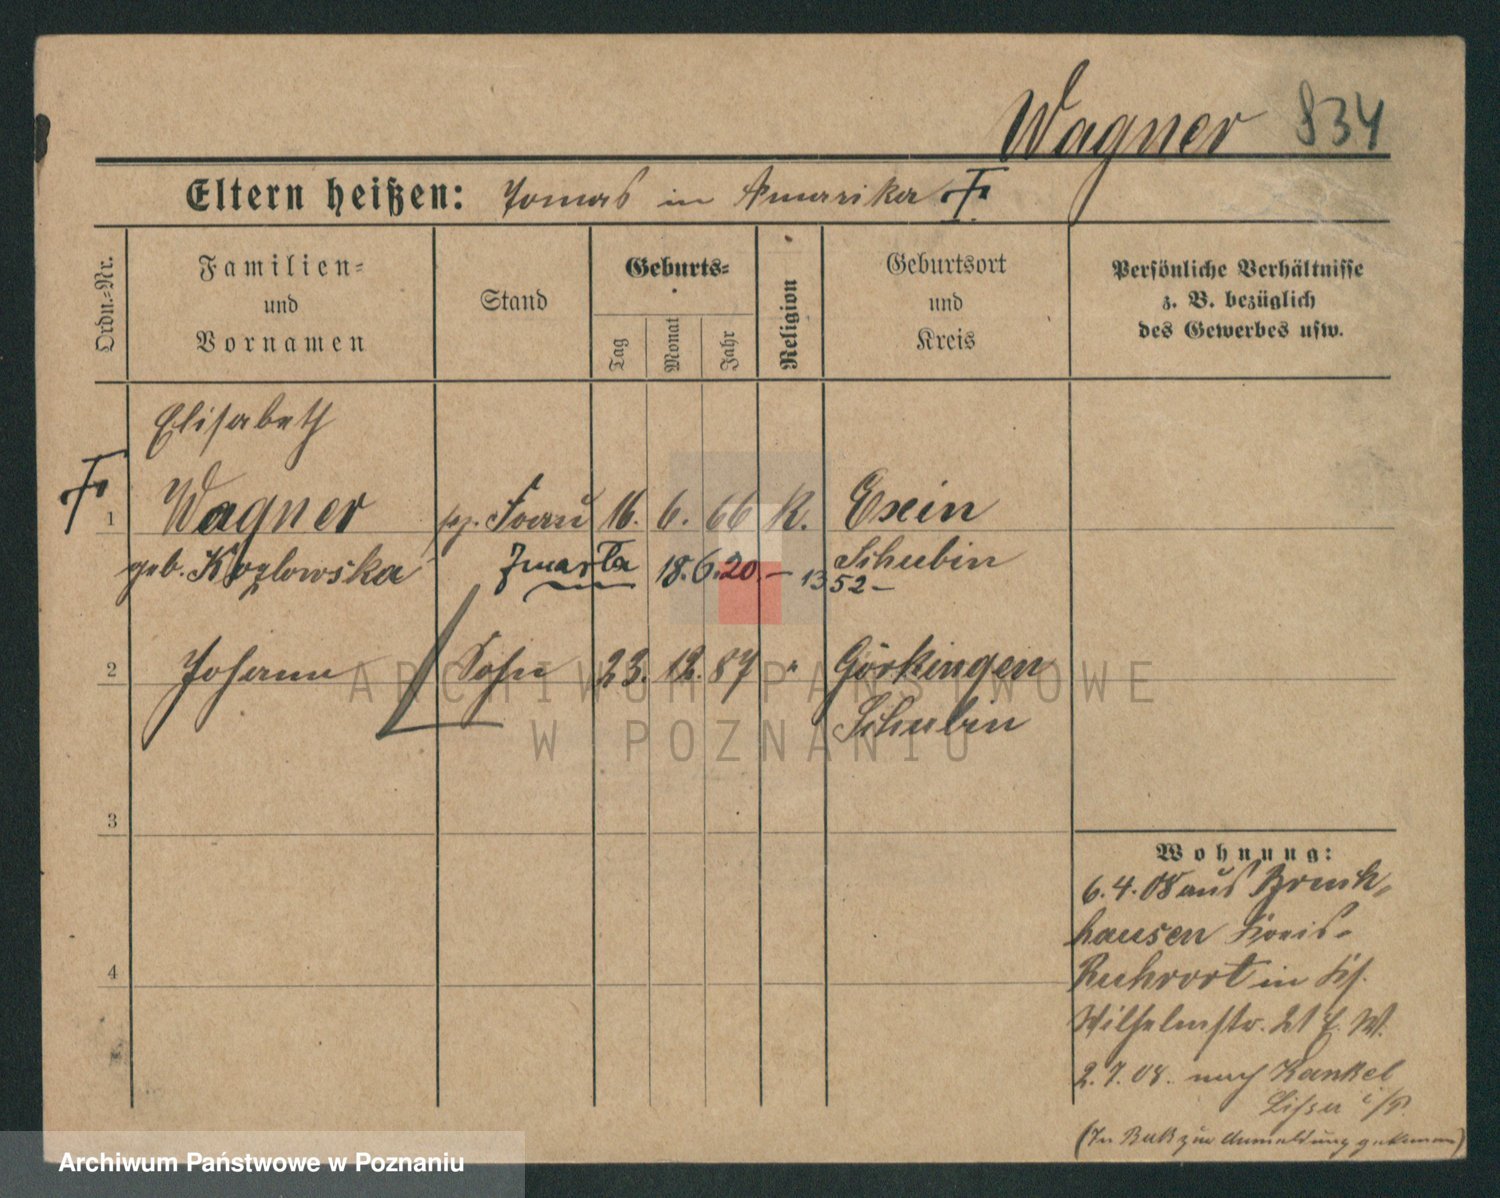 Wagner 834
Eltern heißen: Tomas in Amerika F.
Ordn.=Nr.
Familien=
und
Vornamen
Stand
Geburts=
Tag
Monat
Jahr
Religion
Geburtsort
und
Kreis
Persönliche Verhältnisse
z. B. bezüglich
des Gewerbes usw.
Elisabeth
F 1 Wagner Frau 16. 6. 66 K. Exin
geb. Kozlowska Zmarła 18.6.20.– 1352– Schubin
2 Johann Sohn 23. 12. 87 " Görkingen
Schubin
3
4
Wohnung:
6.4.08 aus Bruck-
hausen Kreis-
Ruhrort in
Wilhelmstr. 21 E. W.
2.7.08. nach Kankel
(In Buk zur Anmeldung gekommen)
ARCHIWUM PAŃSTWOWE
W POZNANIU
Archiwum Państwowe w Poznaniu